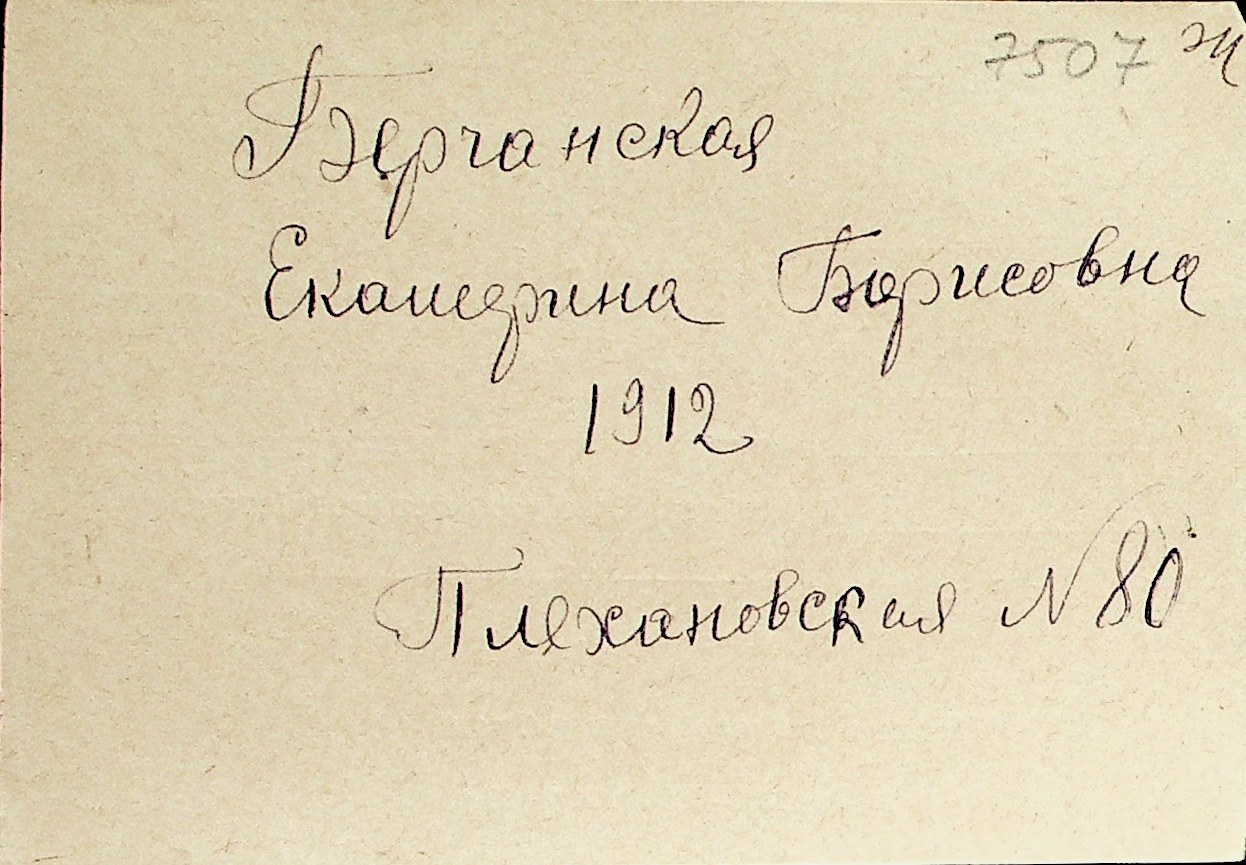 7507 ж
Берчанская
Екатерина Борисовна
1912
Плехановская N 80